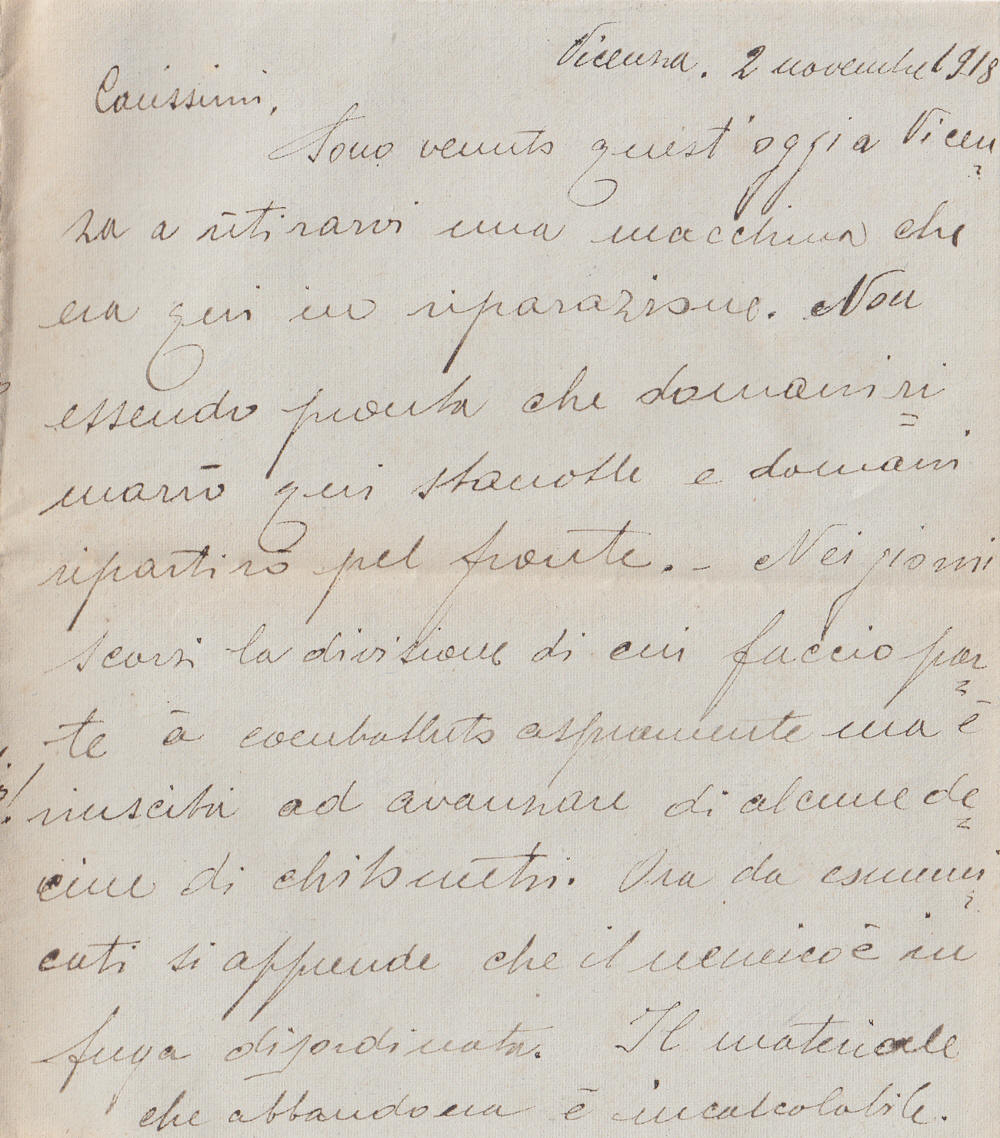 Vicenza. 2 novembre 1918
Carissimi,
Sono venuto quest'oggi a Vicen=
za a ritirarvi una macchina che
era qui in riparazione. Non
essendo pronta che domani ri=
marrò qui stanotte e domani
ripartirò pel fronte. - Nei giorni
scorsi la divisione di cui faccio par=
te à combattuto aspramente ma è
riuscita ad avanzare di alcune de=
cine di chilometri. Ora da comuni=
cati si apprende che il nemico è in
fuga disordinata. Il materiale
che abbandona è incalcolabile.